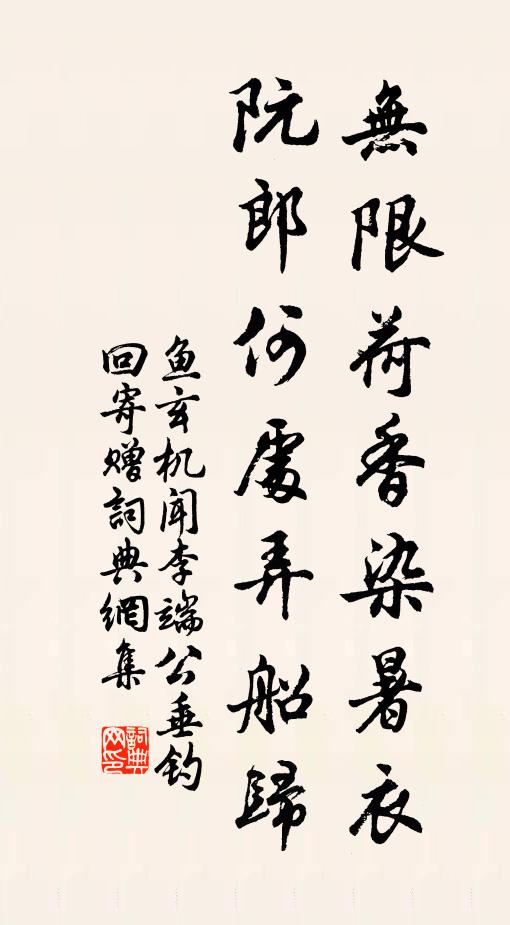 無限荷香染暑衣
阮郎何處弄船歸
鱼玄机闻李端公垂钓
回寄赠詞典網集
詞典
网印